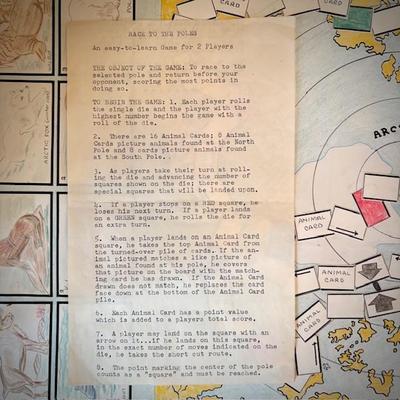 RACE TO THE POLES
An easy-to-learn Game for 2 Players
THE OBJECT OF THE GAME: To race to the
selected pole and return before your
opponent, scoring the most points in
doing so.
TO BEGIN THE GAME: 1. Each player rolls
the single die and the player with the
highest number begins the game with a
roll of the die.
2. There are 16 Animal Cards; 8 Animal
Cards picture animals found at the North
Pole and 8 cards picture animals found
at the South Pole.
3. As players take their turn at roll-
ing the die and advancing the number of
squares shown on the die; there are
special squares that will be landed upon.
4. If a player stops on a RED square, he
loses his next turn. If a player lands
on a GREEN square, he rolls the die for
an extra turn.
5. When a player lands on an Animal Card
square, he takes the top Animal Card from
the turned-over pile of cards. If the an-
imal pictured matches a like picture of
an animal found at his pole, he covers
that picture on the board with the match-
ing card he has drawn. If the Animal Card
drawn does not match, he replaces the card
face down at the bottom of the Animal Card
pile.
6. Each Animal Card has a point value
which is added to a players total score.
7. A player may land on the square with an
arrow on it...if he lands on this square,
in the exact number of moves indicated on the
die, he takes the short cut route.
8. The point marking the center of the pole
counts as a "square" and must be reached.
ARCTIC FOX
CARD
ANIMAL
CARD
ARC
ANIMAL
CARD
ANIMAL
CARD
ANIMAL
CARD